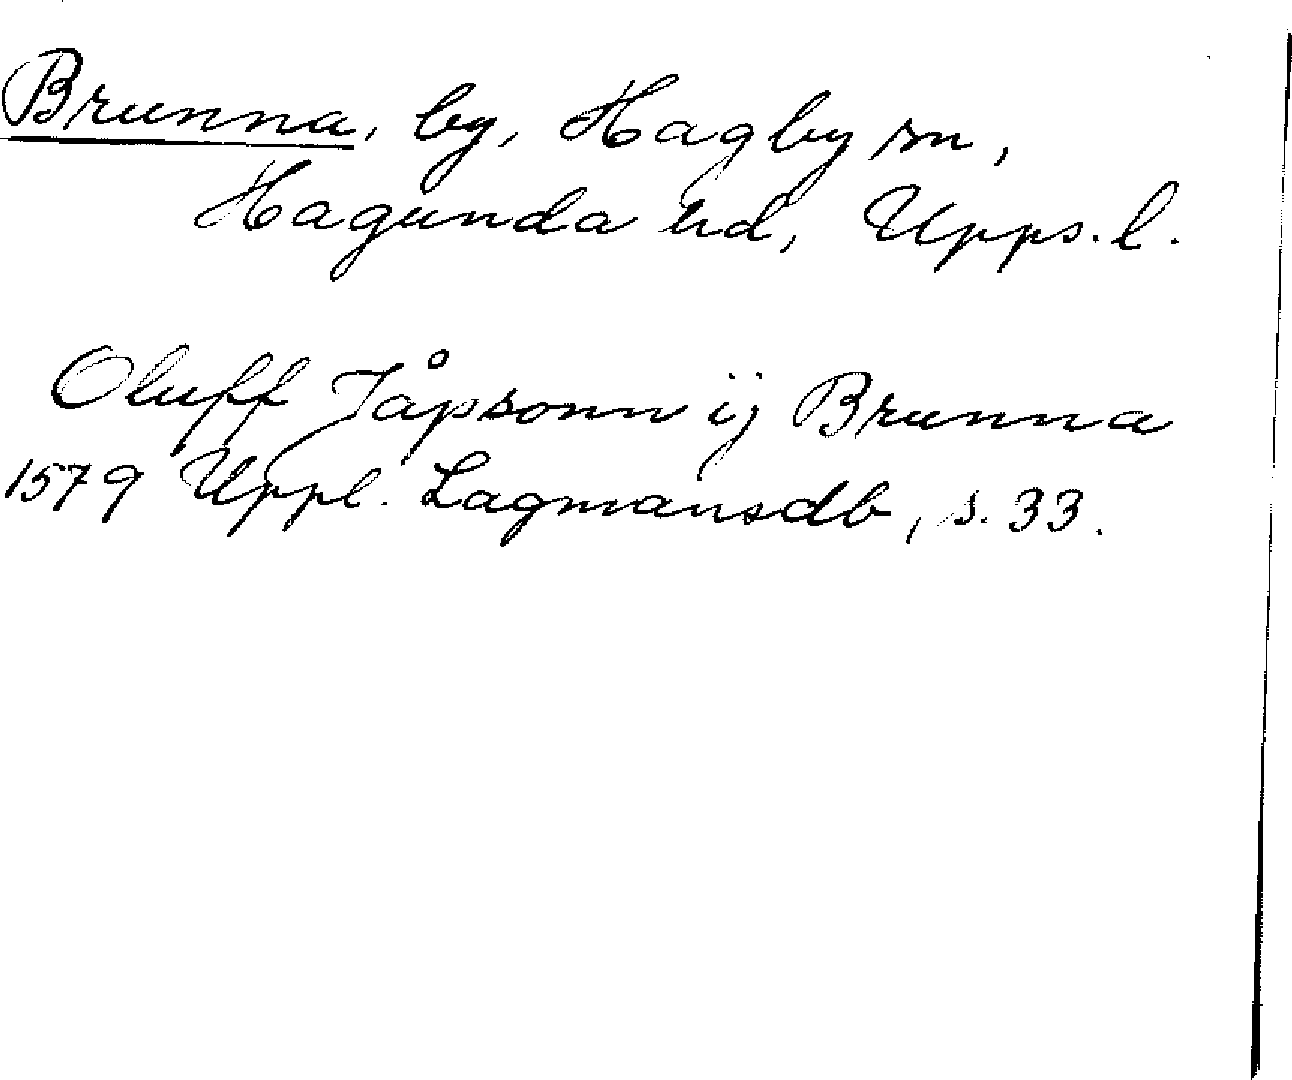 Brunna, by, Hagby sn,
Hagunda hd, Upps. l.
Oluff Jåpsonn ij Brunna
1579 Uppl. Lagmansdb, s. 33.